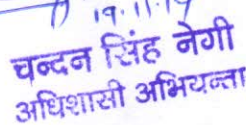 19.11.19
चन्दन सिंह नेगी
अधिशासी अभियन्ता